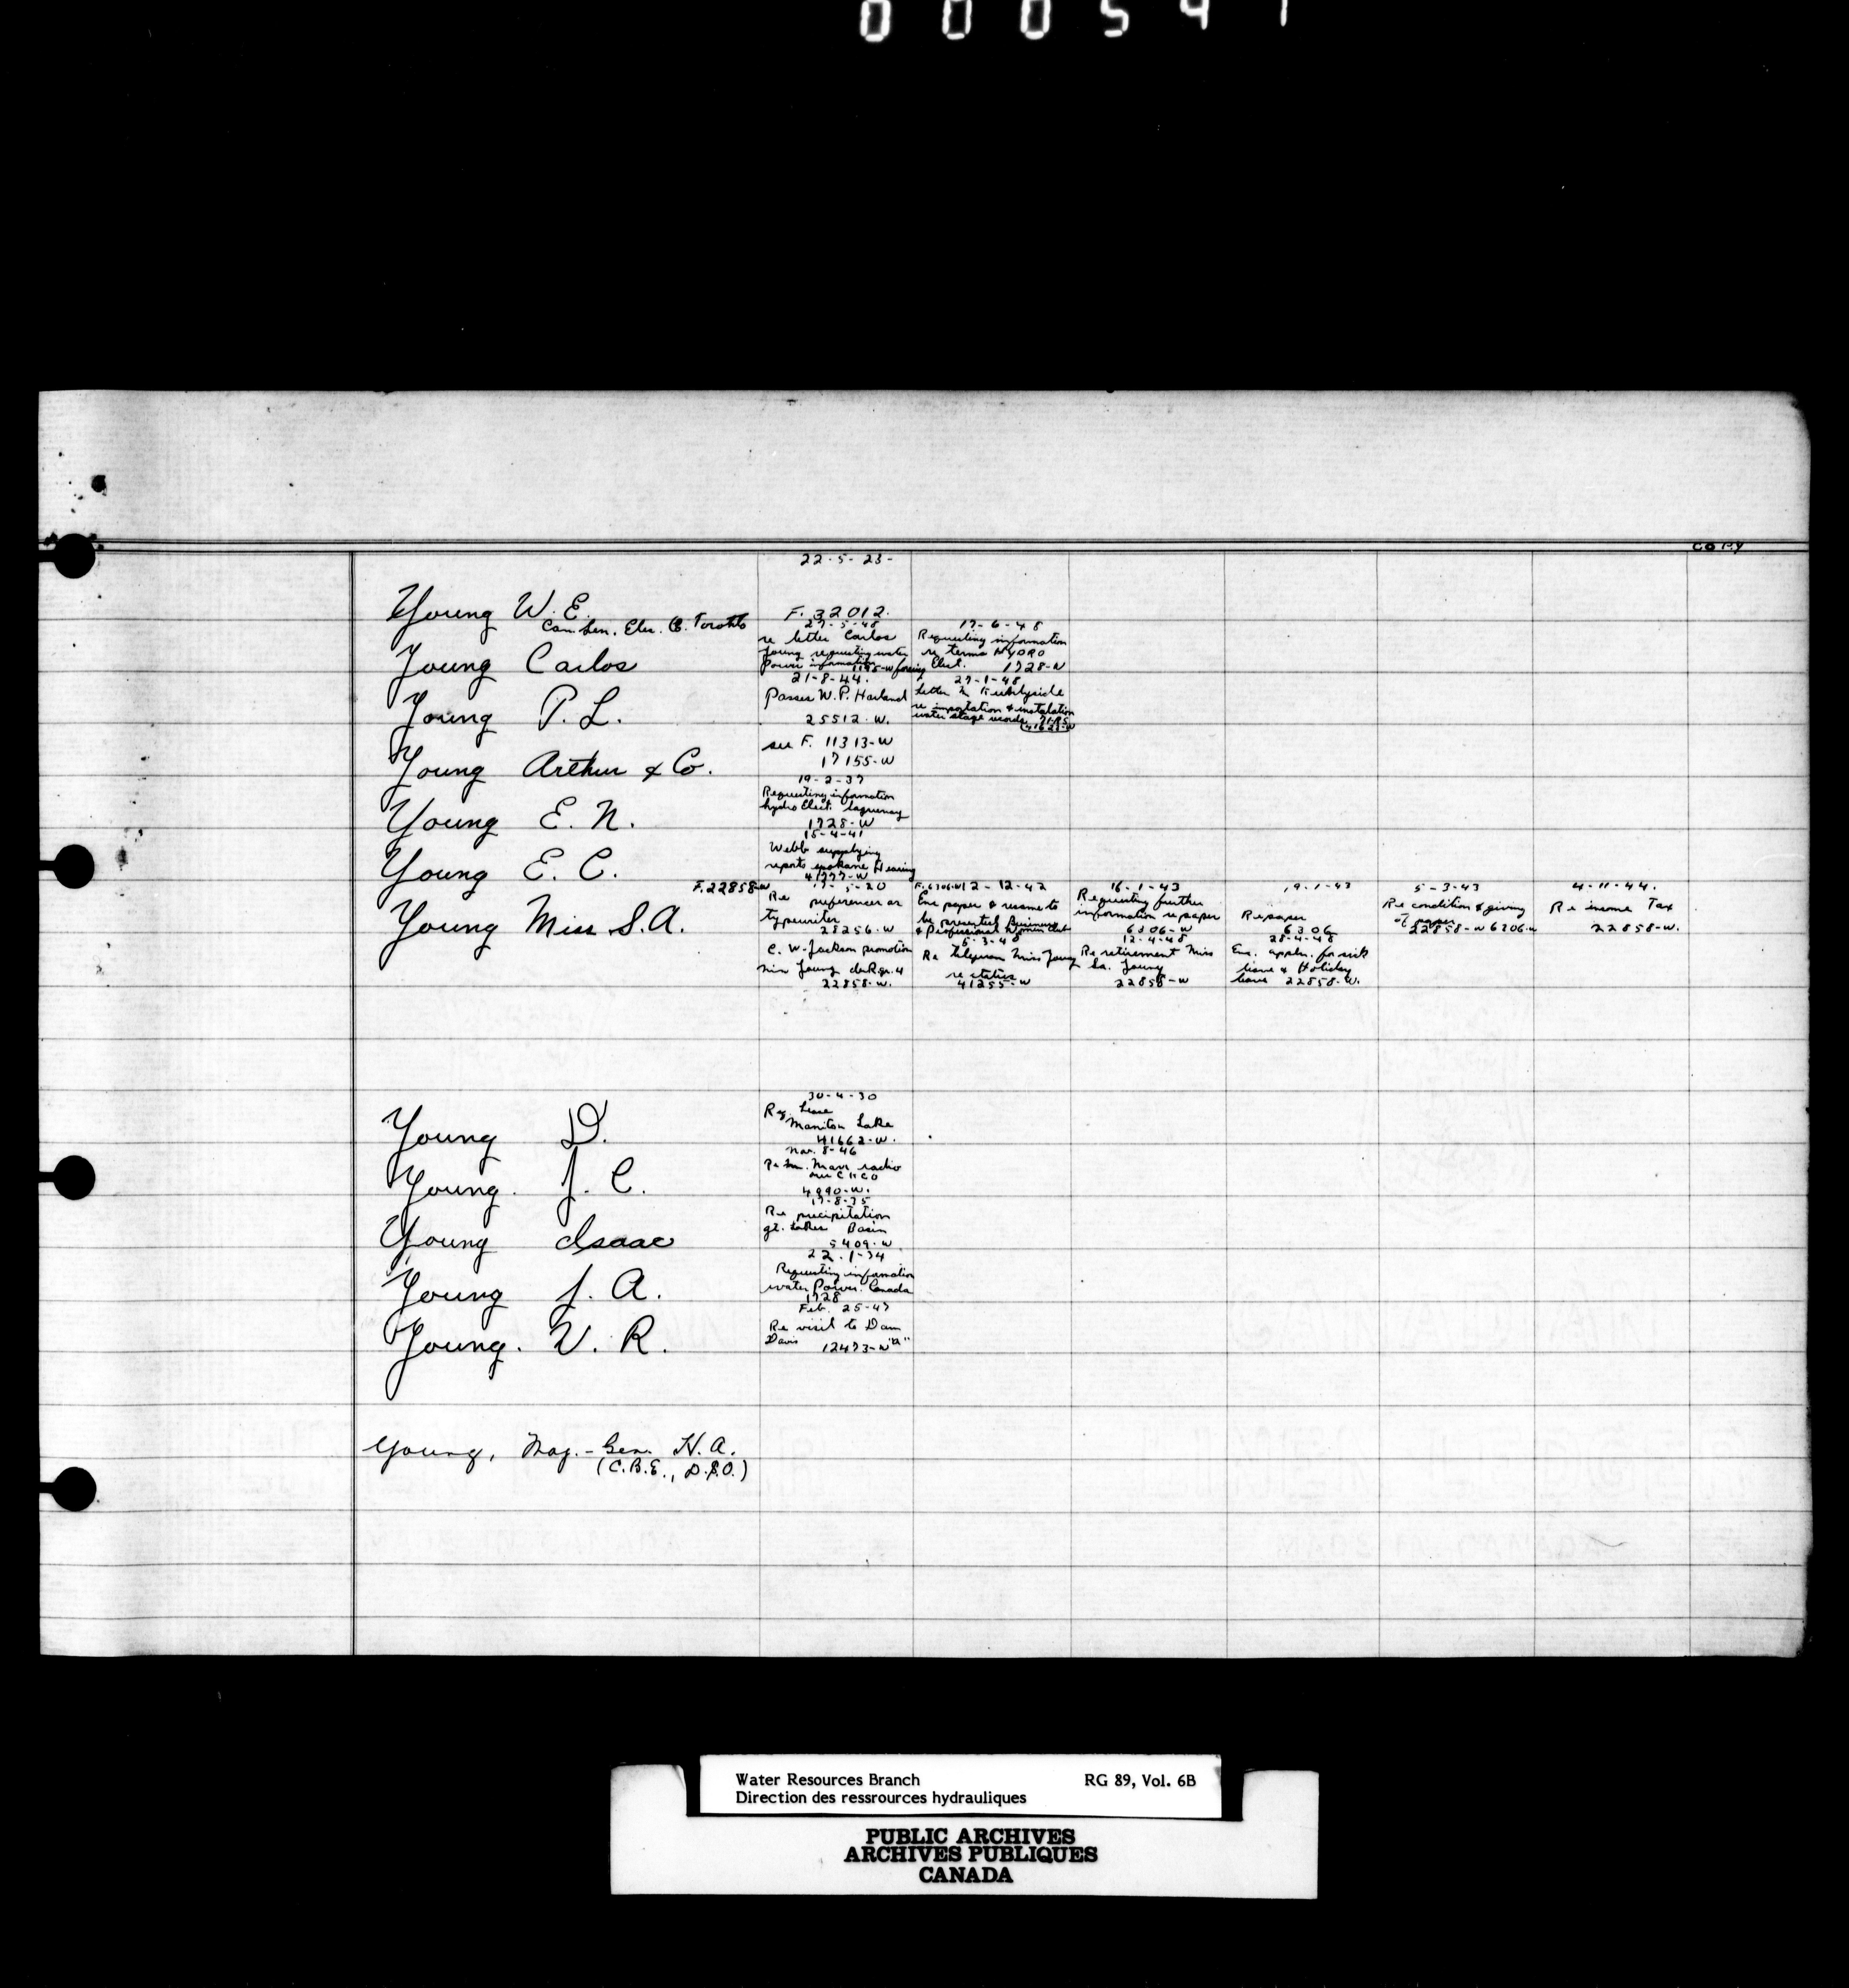 000541
COPY
22-5-23-
Young W. E.
Can. Gen. Elec. Co. Toronto
F. 32012.
27-5-48
re letter Carlos
Young requesting water
Power information
1728-W
17-6-48
Requesting information
re terms HYDRO
Elect. 1728-W
Young Carlos
21-8-44.
Passes W. P. Harland
25512-W.
27-1-48
letter
re importation & installation
water stage
41621-W
Young P. L.
see F. 11313-W
17155-W
Young Arthur & Co.
19-2-37
Requesting information
hydro Elect. Saguenay
1728-W
Young E. N.
15-4-41
Webb supplying
reports Spokane Hearing
41777-W
Young E. C.
F. 22858-W
17-5-20
Re preferences on
typewriter
28256-W
F. 6306-W 12-12-42
Enc paper & resume to
be presented Business
& Professional Women Club
16-1-43
Requesting further
information re paper
6306-W
19-1-43
Re paper
6306
5-3-43
Re condition & giving
of paper
22858-W 6306-W
4-11-44.
Re income Tax
22858-W.
Young Miss S. A.
C. W. Jackson promotion
Miss Young Gr. 4
22858-W.
5-3-48
Re telegram Miss Young
re status
41255-W
12-4-48
Re retirement Miss
Sa. Young
22858-W
28-4-48
Enc. appln. for sick
leave & Holiday
leave 22858-W.
30-4-30
Reg. Lease
Maniton Lake
41662-W.
Young D.
Nov. 8-46
radio
4090-W.
Young. J. C.
17-8-35
Re precipitation
gt. Lakes Basin
5409-W
Young Isaac
22-1-34
Requesting information
water Power. Canada
1728
Young J. A.
Feb. 25-47
Re visit to Dam
Davis 12473-W "A"
Young. V. R.
Young, Maj.-Gen. H. A.
(C.B.E., D.S.O.)
Water Resources Branch RG 89, Vol. 6B
Direction des ressrources hydrauliques
PUBLIC ARCHIVES
ARCHIVES PUBLIQUES
CANADA